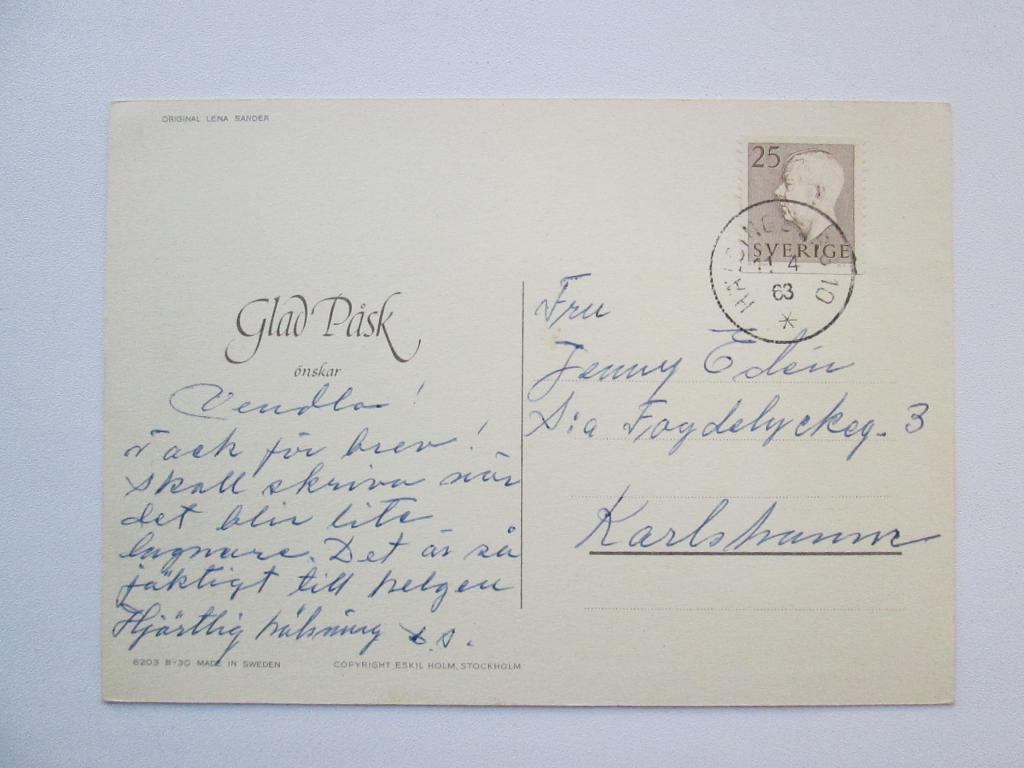 ORIGINAL LENA SANDER
25
SVERIGE
HÄLSINGBORG 10
11 4
63
Glad Påsk
önskar
Vendla!
Tack för brev!
Skall skriva när
det blir lite
lugnare. Det är så
jäktigt till helgen
Hjärtlig hälsning
Fru
Jenny Edén
S:a Fogdelyckeg. 3
Karlshamn
6203 B-30 MADE IN SWEDEN
COPYRIGHT ESKIL HOLM, STOCKHOLM